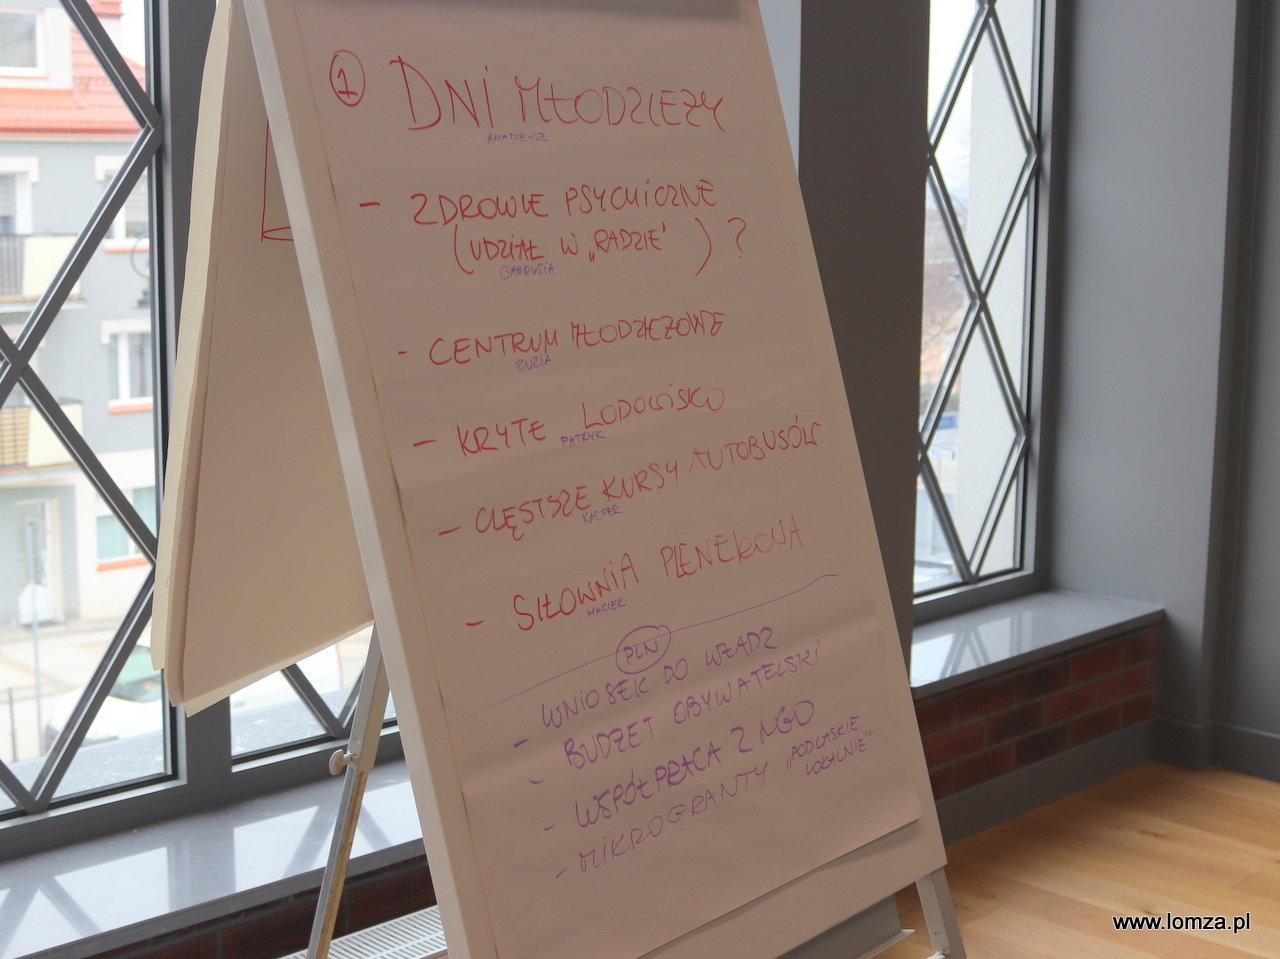 1 DNI MŁODZIEŻY
AMADEUSZ
- ZDROWIE PSYCHICZNE
(UDZIAŁ W „RADZIE" ) ?
GABRYSIA
- CENTRUM MŁODZIEŻOWE
ZUZIA
- KRYTE LODOWISKO
PATRYK
- CZĘSTSZE KURSY AUTOBUSÓW
KACPER
- SIŁOWNIA PLENEROWA
MACIEK
PLN
- WNIOSEK DO WŁADZ
- BUDŻET OBYWATELSKI
- WSPÓŁPRACA Z NGO
- MIKROGRANTY „PODLASKIE
LOKALNIE"
www.lomza.pl